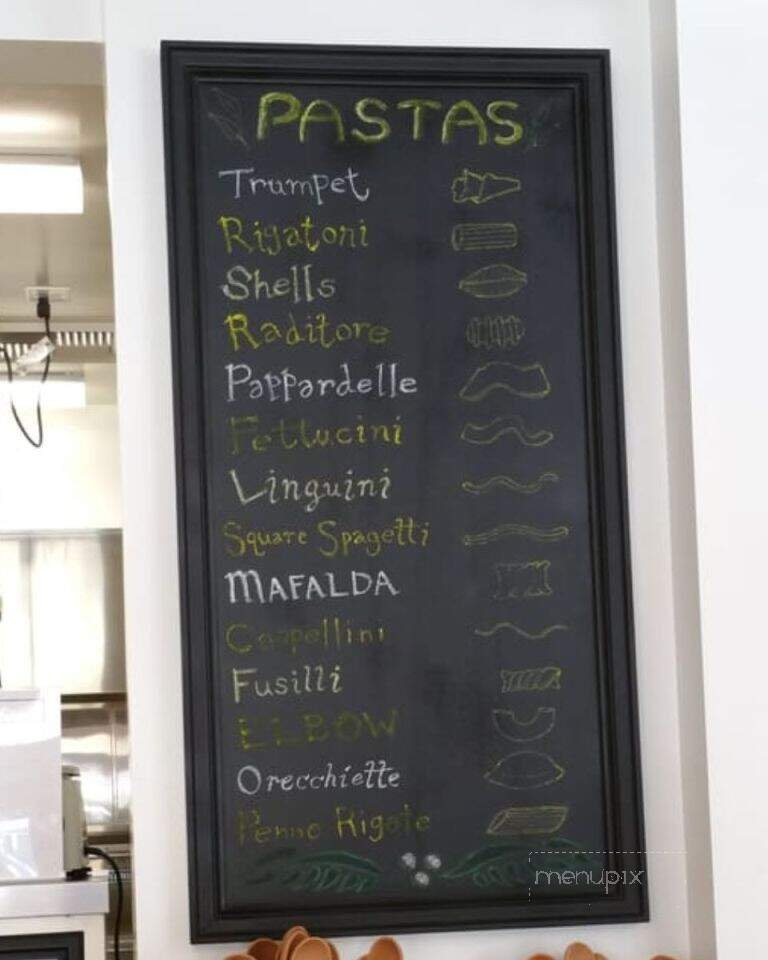 PASTAS
Trumpet
Rigatoni
Shells
Raditore
Pappardelle
Fettucini
Linguini
Square Spagetti
MAFALDA
Cappellini
Fusilli
ELBOW
Orecchiette
Penne Rigate
menupix